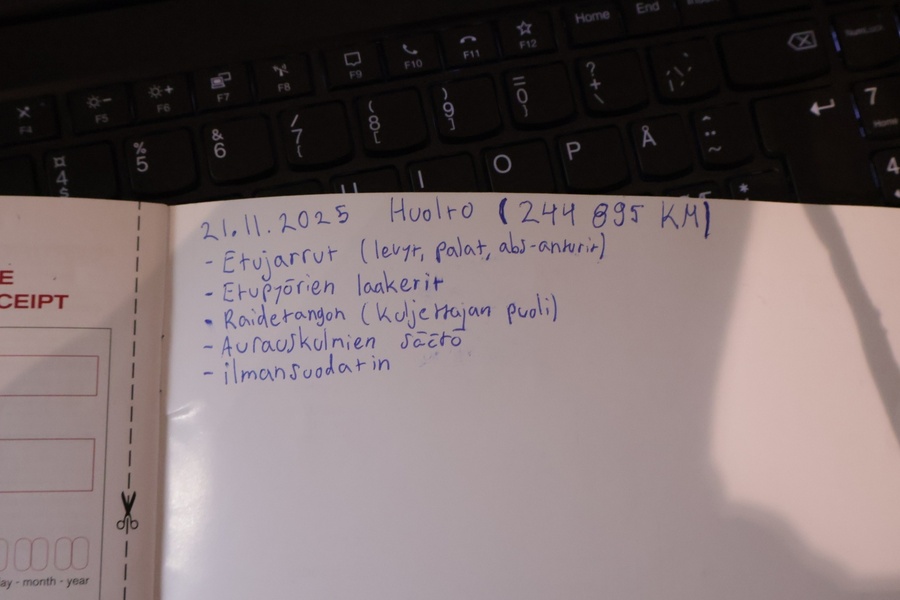 Home End
F4 F5 F6 F7 F8 F9 F10 F11 F12
¤ 4 $ % 5 & 6 / 7 { ( 8 [ ) 9 ] = 0 } ? + \
U I O P Å ¨ ^ ~ * 7 Home 4
21.11.2025 Huolto (244 895 KM)
- Etujarrut (levyt, palat, abs-anturit)
- Etupyörien laakerit
- Raidetangon (kuljettajan puoli)
- Aurauskulmien säätö
- ilmansuodatin
E
CEIPT
ay - month - year